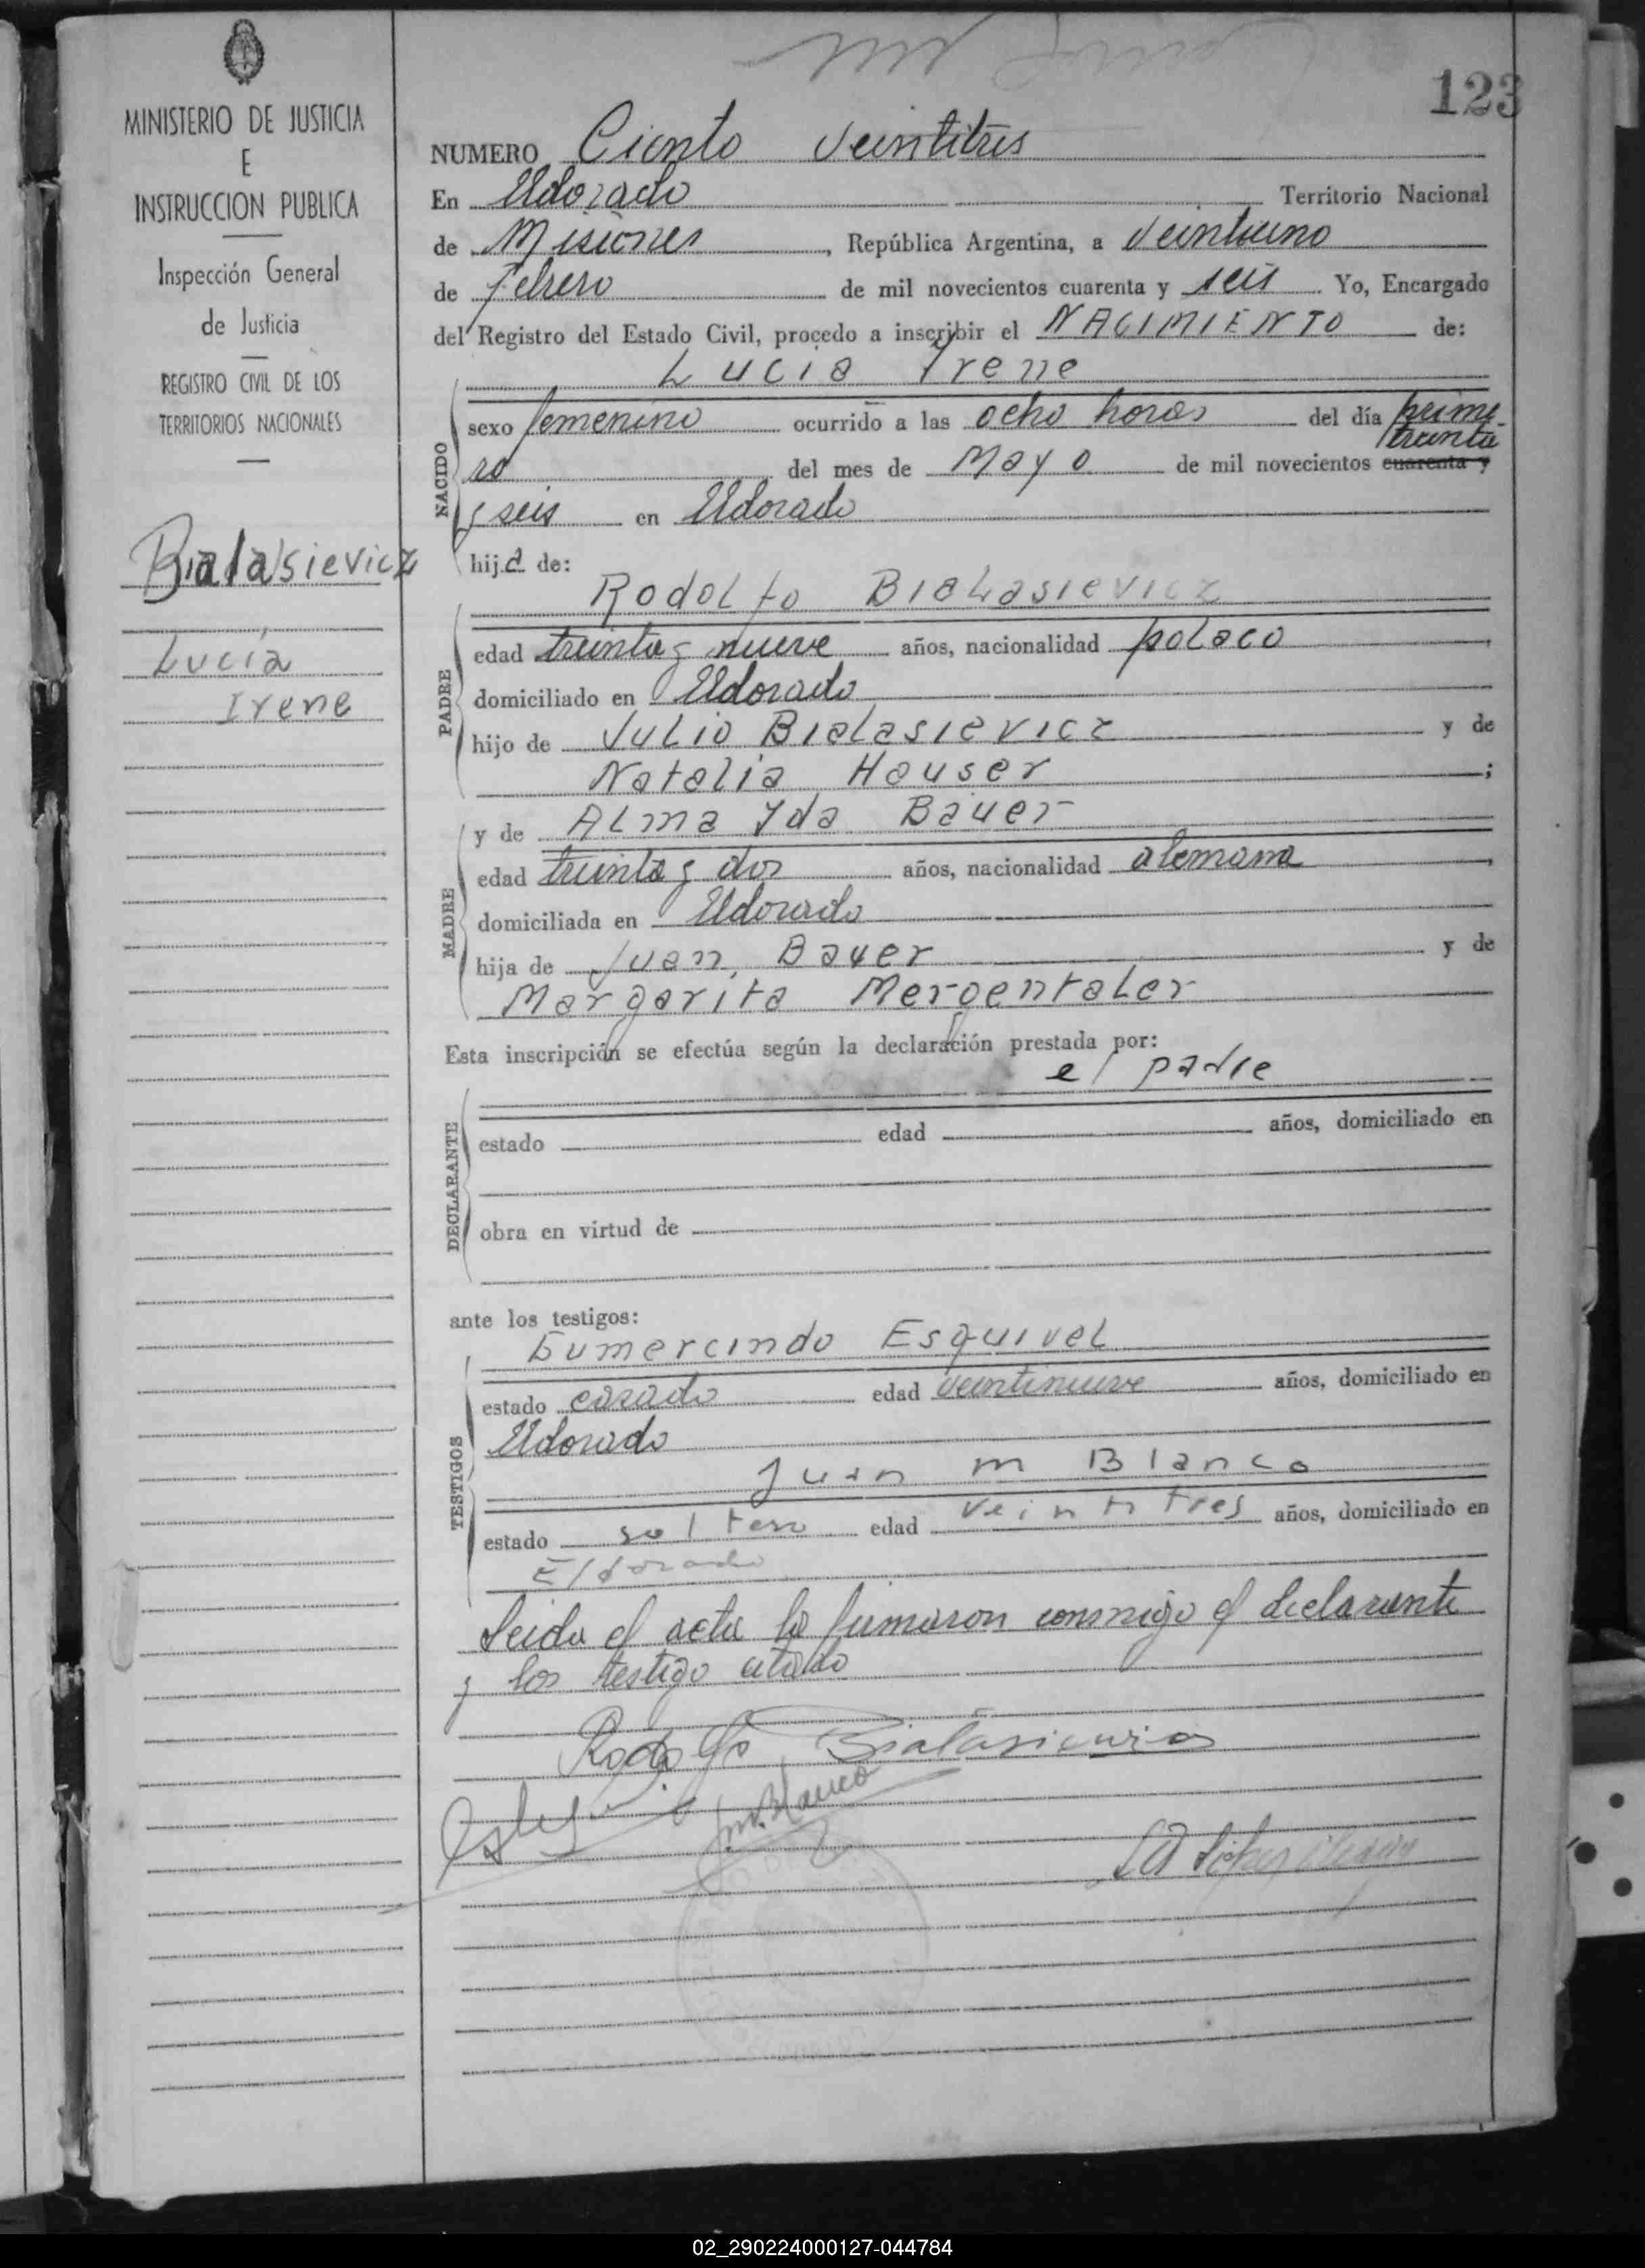 123
MINISTERIO DE JUSTICIA
E
INSTRUCCION PUBLICA
Inspección General
de Justicia
REGISTRO CIVIL DE LOS
TERRITORIOS NACIONALES
Bialasievicz
Lucía
Irene
NUMERO Ciento veintitres
En Eldorado Territorio Nacional
de Misiones, República Argentina, a veintiuno
de febrero de mil novecientos cuarenta y seis Yo, Encargado
del Registro del Estado Civil, procedo a inscribir el NACIMIENTO de:
Lucia Yrene
NACIDO
sexo femenino ocurrido a las ocho horas del día prime-
treinta
ro del mes de Mayo de mil novecientos cuarenta y
y seis en Eldorado
hija de:
Rodolfo Bialasievicz
PADRE
edad treinta y nueve años, nacionalidad polaco,
domiciliado en Eldorado
hijo de Julio Bialasievicz y de
Natalia Hauser;
MADRE
y de Alma Yda Bauer
edad treinta y dos años, nacionalidad alemana,
domiciliada en Eldorado
hija de Juan Bauer y de
Margarita Mergentaler
Esta inscripción se efectúa según la declaración prestada por:
el padre
DECLARANTE
estado edad años, domiciliado en
obra en virtud de
ante los testigos:
TESTIGOS
Gumercindo Esquivel
estado casado edad veintinueve años, domiciliado en
Eldorado
Juan M Blanco
estado soltero edad veintitres años, domiciliado en
Eldorado
Leida el acta la firmaron conmigo el declarante
y los testigo citado
Rodolfo Bialasiewicz
J.M. Blanco
02_290224000127-044784